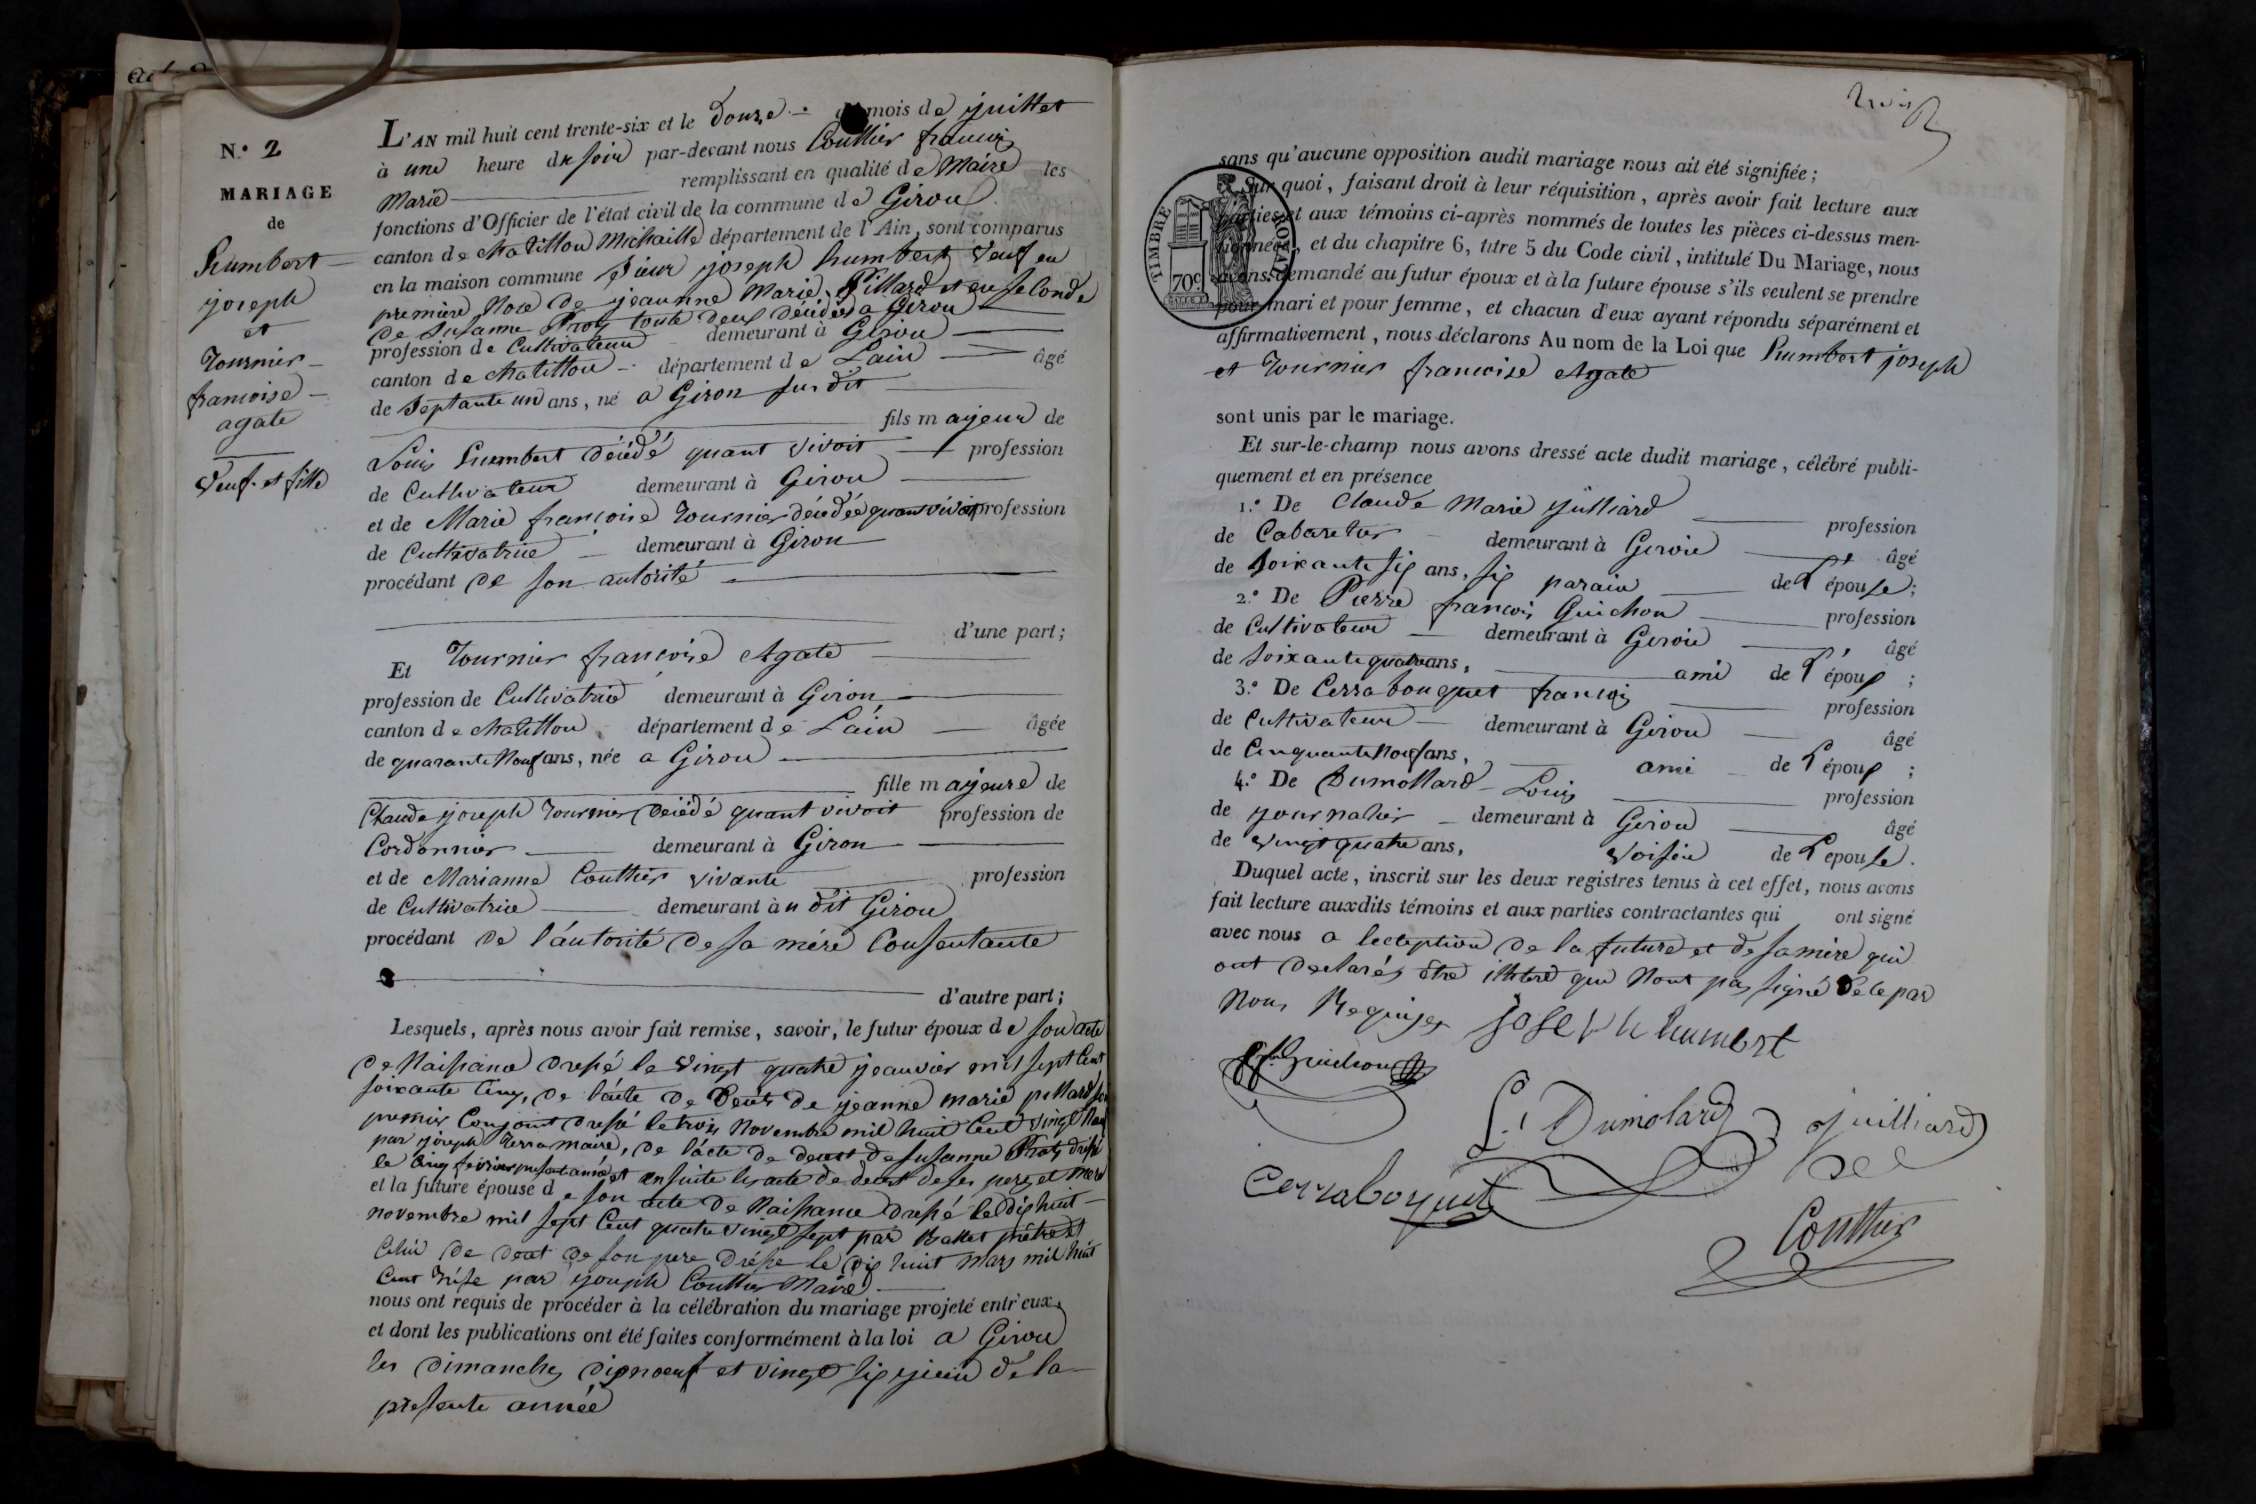 N.° 2
MARIAGE
de
humbert
joseph
et
Tournier
francoise
agate
Veuf et fille
L'AN mil huit cent trente-six et le douze du mois de juillet
à une heure du soir par-devant nous Couttier francois
Marie remplissant en qualité de Maire les
fonctions d'Officier de l'état civil de la commune de Giron
canton de chatillon Michaille département de l'Ain, sont comparus
en la maison commune Sieur joseph humbert Veuf en
premiere Noce de jeanne Marie Pillard et en seconde
de Susanne toute deux décédés a Giron
profession de Cultivateur demeurant à Giron
canton de chatillon département de Lain âgé
de Septante un ans, né a Giron sus dit
fils majeur de
Louis humbert décédé quant vivoit profession
de Cultivateur demeurant à Giron
et de Marie francoise Tournier décédée quant vivoit profession
de Cultivatrice demeurant à Giron
procédant de son autorité
d'une part;
Et Tournier francoise Agate
profession de Cultivatrice demeurant à Giron
canton de chatillon département de L'ain âgée
de quarante Neuf ans, née a Giron
fille majeure de
Claude joseph Tournier décédé quant vivoit profession de
Cordonnier demeurant à Giron
et de Marianne Couttier vivante profession
de Cultivatrice demeurant à u dit Giron
procédant de l'autorité de sa mère Consentante
d'autre part;
Lesquels, après nous avoir fait remise, savoir, le futur époux de son acte
de Naissance dressé le vingt quatre jeanvier mil sept Cent
soixante Cinq, de l'acte de Decés de jeanne marie pillard son
premier Conjoint dressé le trois Novembre mil huit Cent vingt Neuf
par joseph Terra maire, de l'acte de decest de Susanne dressé
le Cinq fevrier presente année et ensuite les acte de decest de ses peres et mere
et la future épouse de son acte de Naissance dressé le dix huit
novembre mil sept Cent quatre vingt sept par Ballet prêtre et
Celui de decet de son pere dréssé le dix huit mars mil huit
Cent treise par joseph Couttier Maire
nous ont requis de procéder à la célébration du mariage projeté entr'eux,
et dont les publications ont été faites conformément à la loi a Giron
les dimanches dix noeuf et vingt six juin de la
presente année
TIMBRE ROYAL
70 c.
sans qu'aucune opposition audit mariage nous ait été signifiée;
Sur quoi, faisant droit à leur réquisition, après avoir fait lecture aux
parties et aux témoins ci-après nommés de toutes les pièces ci-dessus men-
tionnées, et du chapitre 6, titre 5 du Code civil, intitulé Du Mariage, nous
avons demandé au futur époux et à la future épouse s'ils veulent se prendre
pour mari et pour femme, et chacun d'eux ayant répondu séparément et
affirmativement, nous déclarons Au nom de la Loi que humbert joseph
et Tournier francoise Agate
sont unis par le mariage.
Et sur-le-champ nous avons dressé acte dudit mariage, célébré publi-
quement et en présence
1.° De Claude Marie juilliard profession
de Cabaretier demeurant à Giron âgé
de Soixante six ans, parain de L'épouse;
2.° De Pierre francois Guichon profession
de Cultivateur demeurant à Giron âgé
de Soixante quatre ans, ami de L'époux;
3.° De Cerrabouquet francois profession
de Cultivateur demeurant à Giron âgé
de Cinquante Neuf ans, ami de L'époux;
4.° De Dumollard Louis profession
de journalier demeurant à Giron âgé
de vingt quatre ans, voisin de L'epouse.
Duquel acte, inscrit sur les deux registres tenus à cet effet, nous avons
fait lecture auxdits témoins et aux parties contractantes qui ont signé
avec nous a lecteption de la future et de sa mère qui
ont declarés être illiteré qui Nont pas signé de ce par
Nous Requises joseph humbert
Guichon
L. Dumolard juilliard
Cerraboquet
Couttier